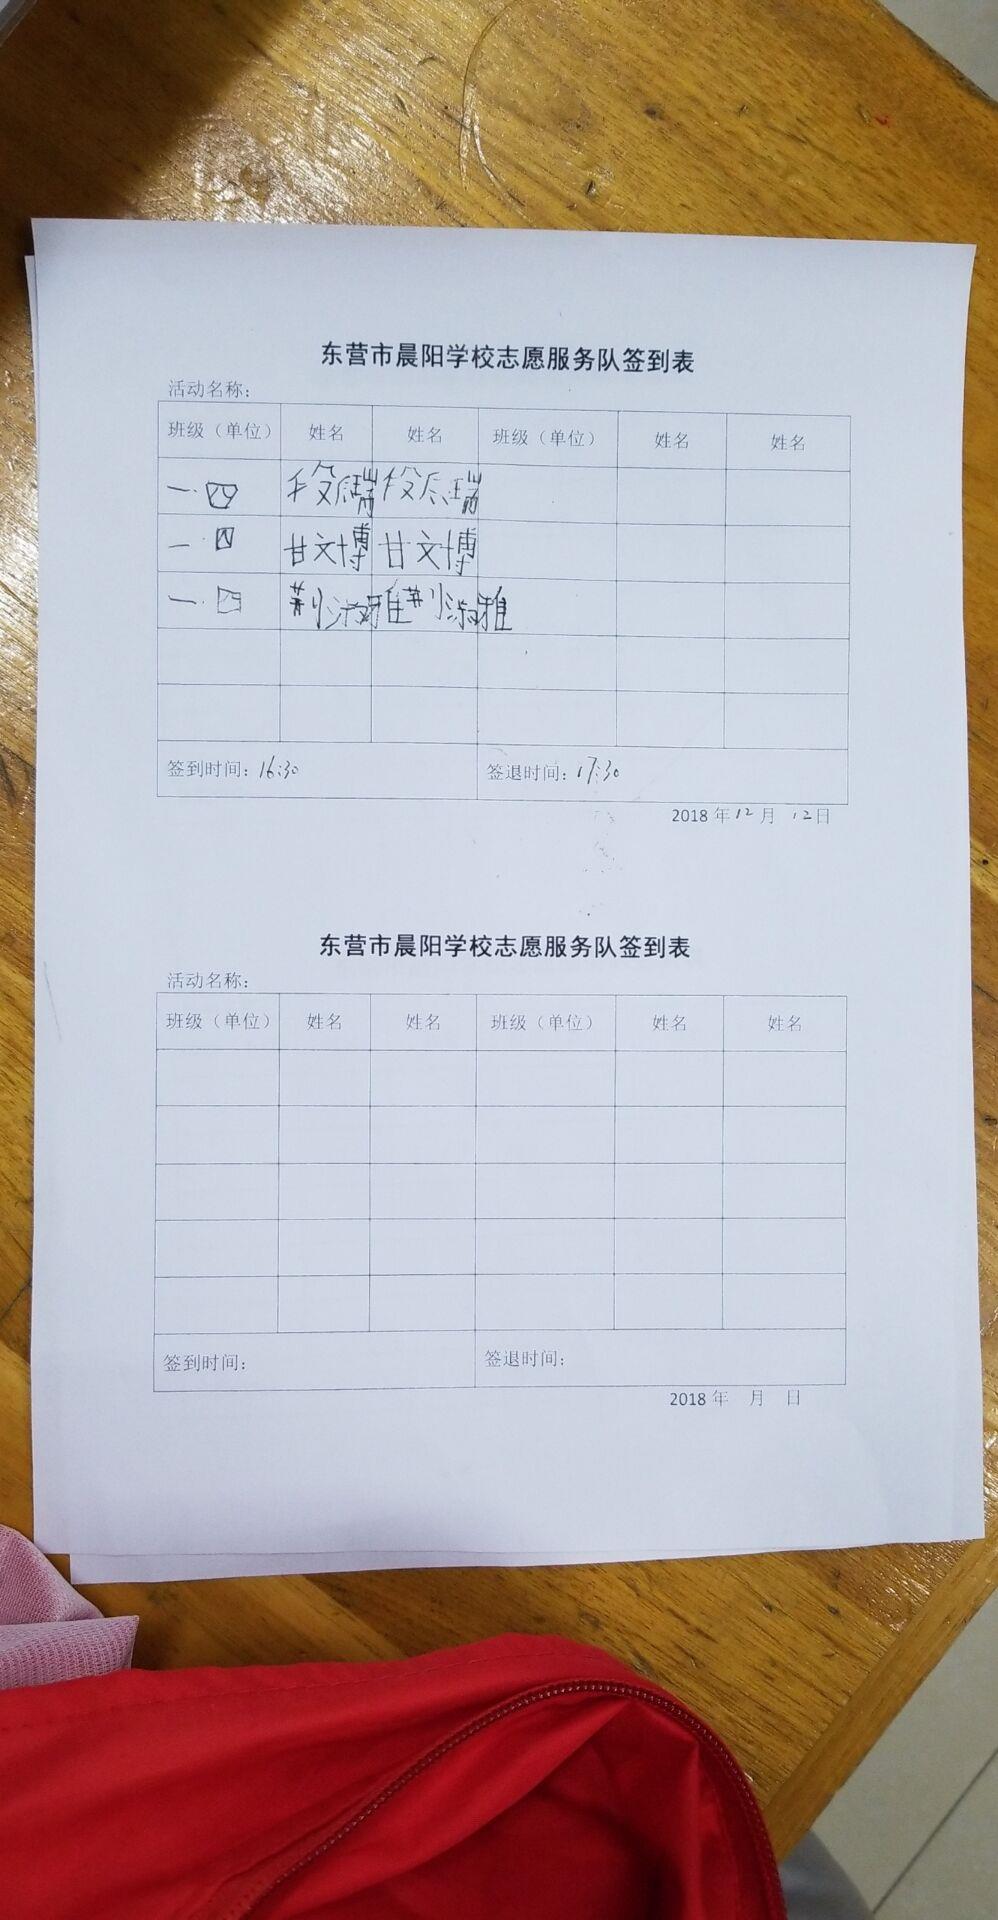 东营市晨阳学校志愿服务队签到表
活动名称：
班级（单位） 姓名 姓名 班级（单位） 姓名 姓名
一.四 段 瑞 段 瑞
一.四 甘文博 甘文博
一.四 荆淑雅 荆淑雅
签到时间：16:30 签退时间：17:30
2018年12月 12日
东营市晨阳学校志愿服务队签到表
活动名称：
班级（单位） 姓名 姓名 班级（单位） 姓名 姓名
签到时间： 签退时间：
2018年 月 日